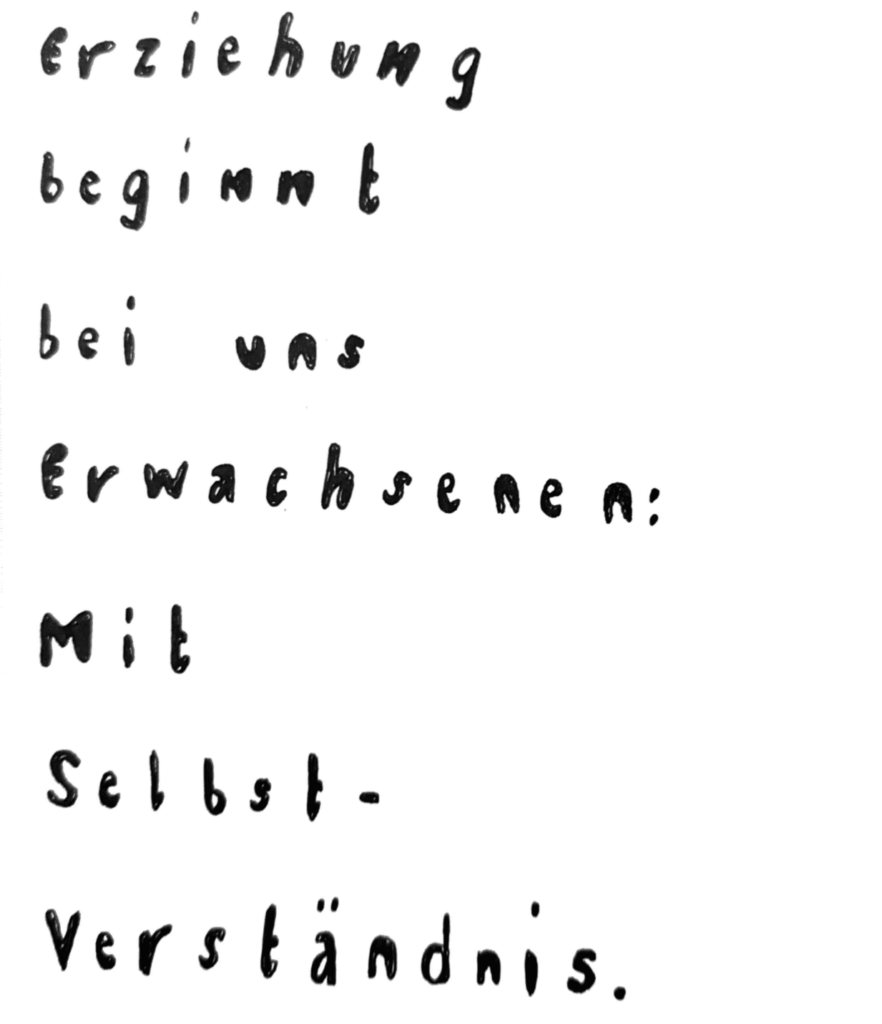 Erziehung
beginnt
bei uns
Erwachsenen:
Mit
Selbst-
Verständnis.